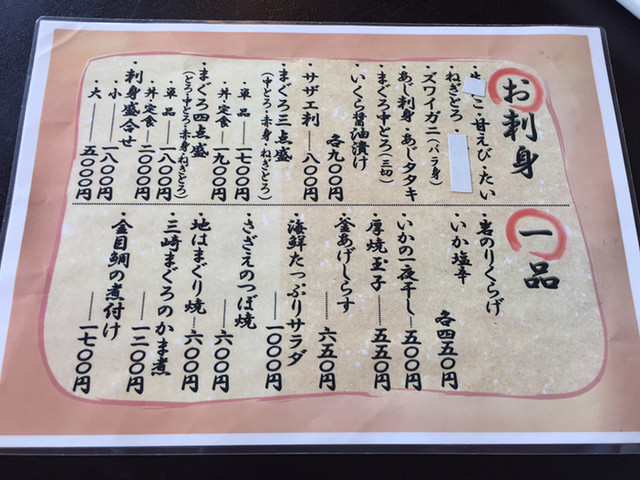 お刺身
こ・甘えび・たい
・ねぎとろ・
・ズワイガニ(バラ身)
・あじ刺身・あじタタキ
・まぐろ中とろ(三切)
・いくら醤油漬け
各九〇〇円
・サザエ刺――八〇〇円
・まぐろ三点盛
(中とろ・赤身・ねぎとろ)
・単品――一七〇〇円
・丼定食――一九〇〇円
・まぐろ四点盛
(とろ・中とろ・赤身・ねぎとろ)
・単品――一八〇〇円
・丼定食――二〇〇〇円
・刺身盛合せ
・小――一八〇〇円
・大――五〇〇〇円
一品
・岩のりくらげ
・いか塩辛
各四五〇円
・いかの一夜干し――五〇〇円
・厚焼玉子――五五〇円
・釜あげしらす
――六五〇円
・海鮮たっぷりサラダ
――一〇〇〇円
・さざえのつぼ焼
――六〇〇円
・地はまぐり焼――六〇〇円
・三崎まぐろのかま煮
――一二〇〇円
・金目鯛の煮付け
――一七〇〇円